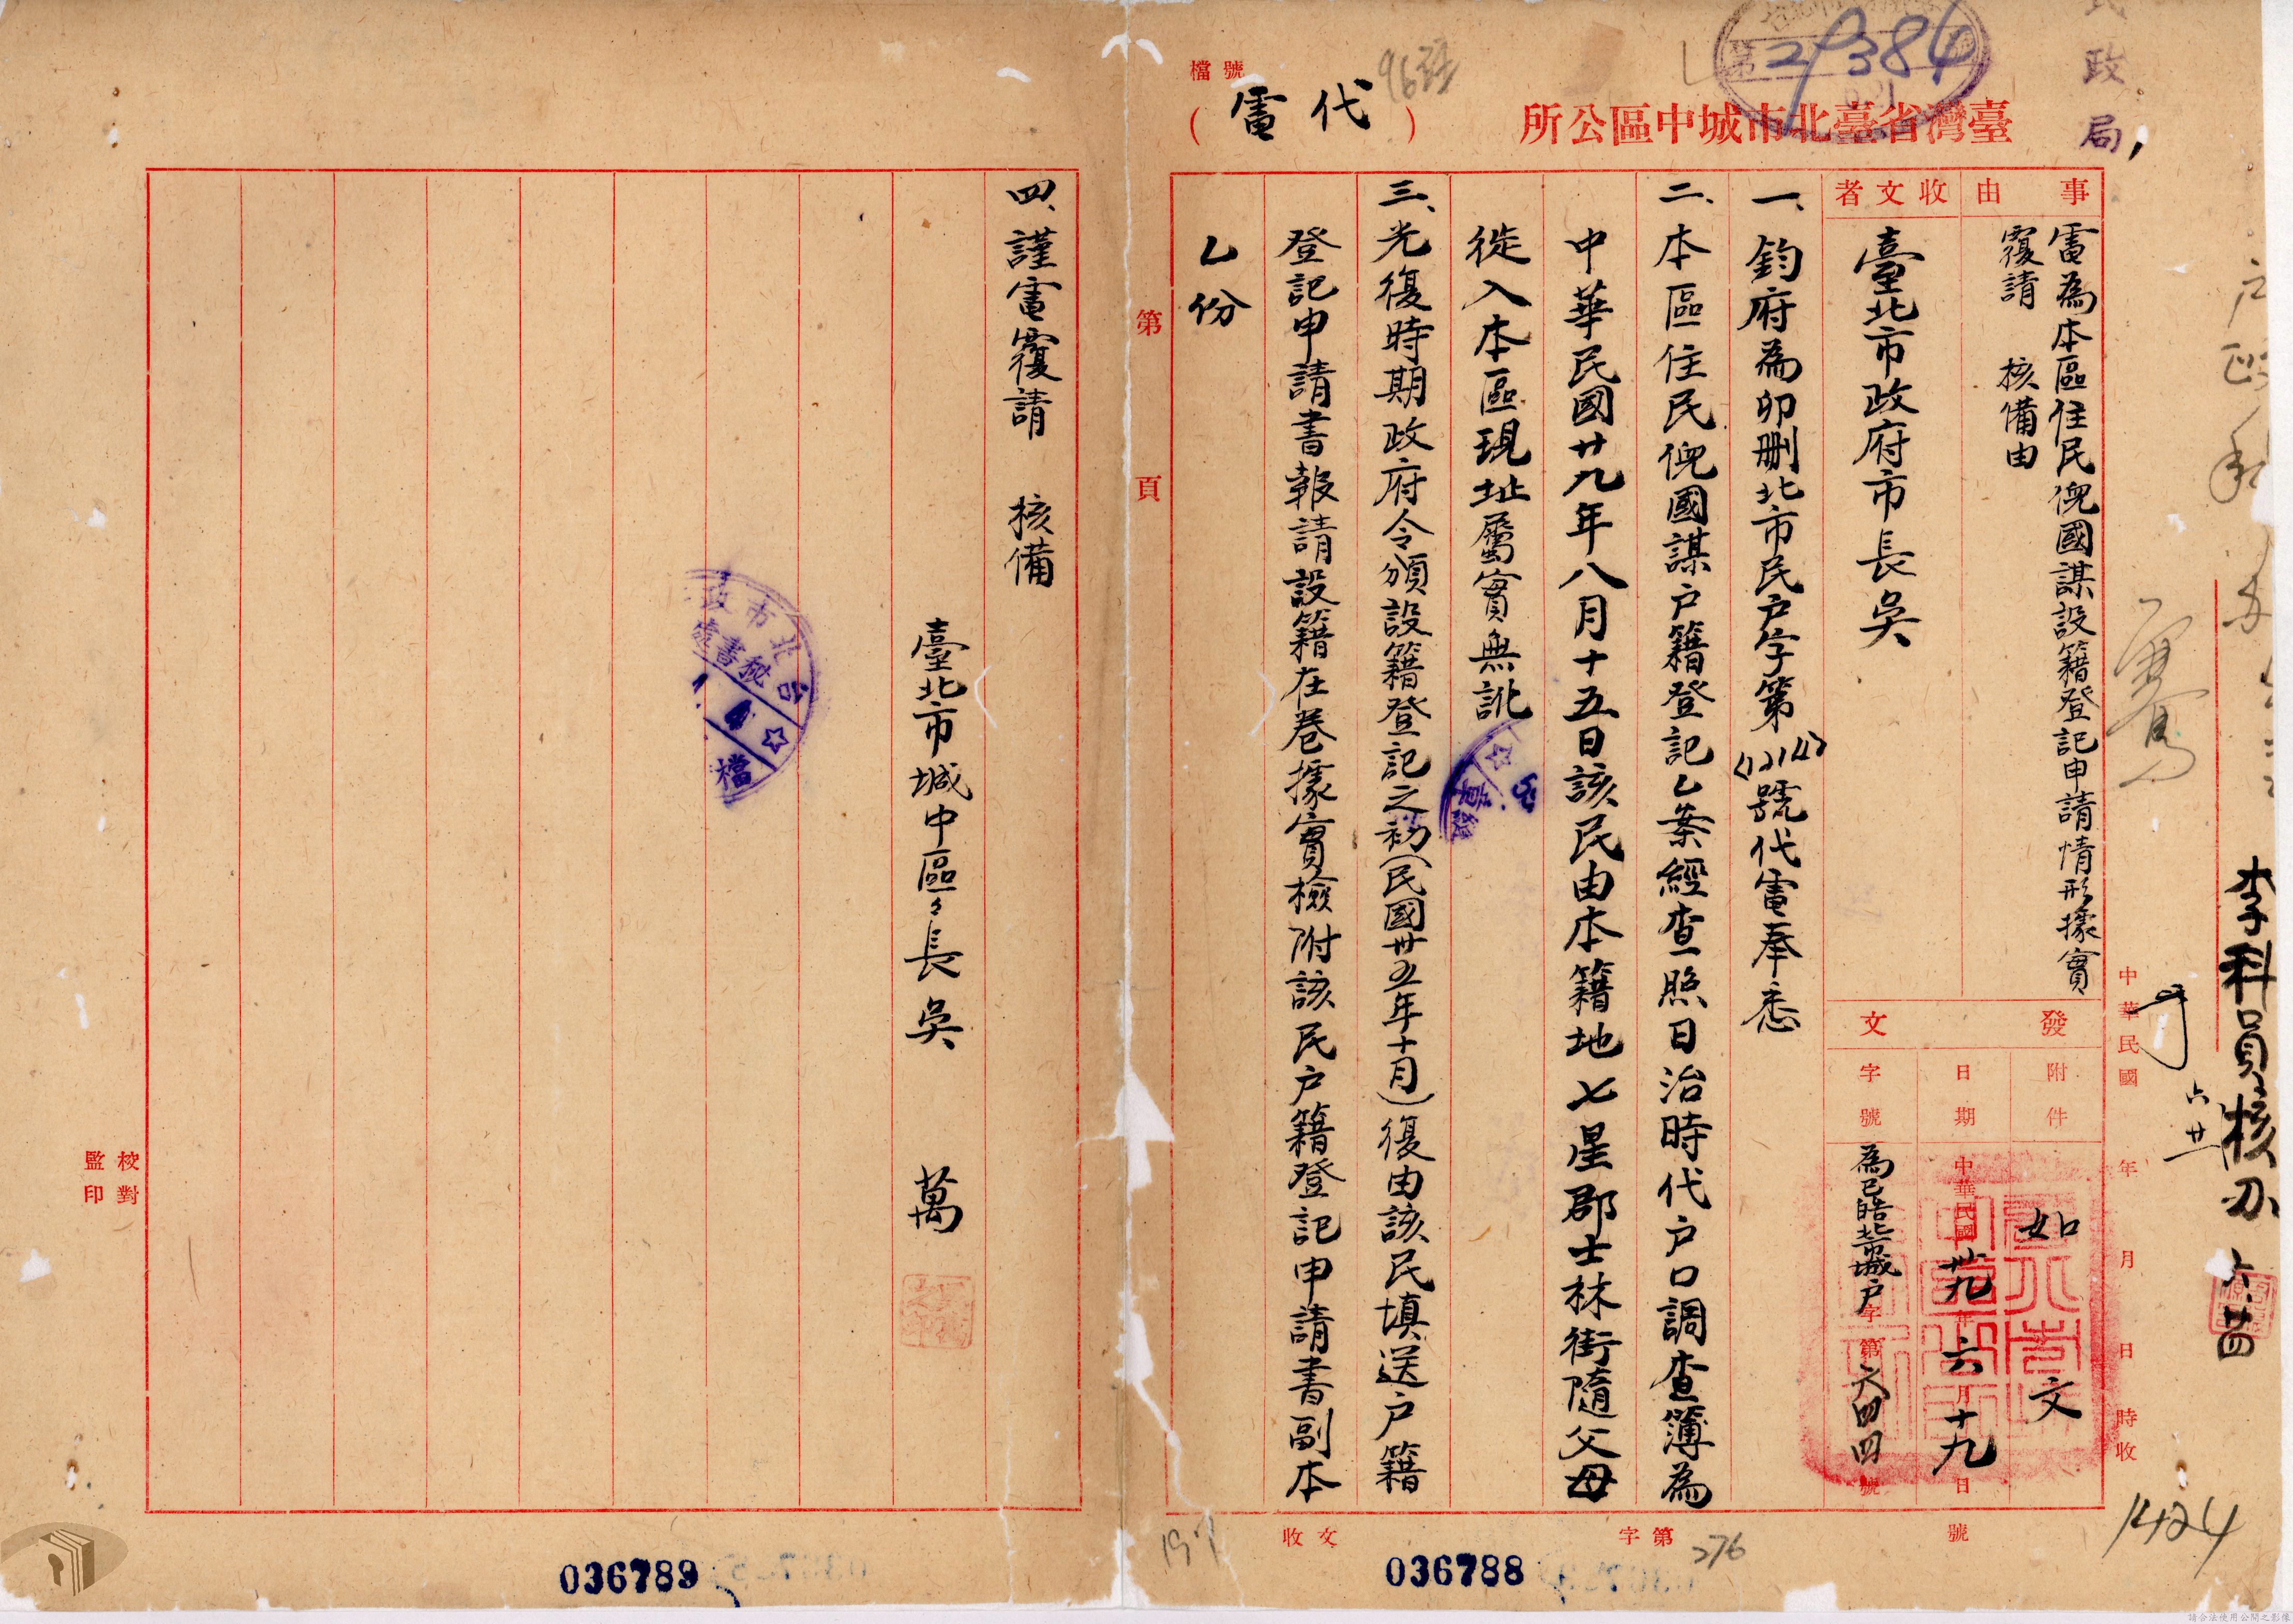 民政局
李科員核办 六.廿四
六廿一
29384
檔號
臺灣省臺北市城中區公所
(代電)
事由
電為本區住民倪國謀設籍登記申請情形據實
覆請 核備由
收文者
臺北市政府市長吳
發文
附件
如文
日期
中華民國卅九年六月十九日
字號
為巳皓北市城戶字第六四四號
中華民國 年 月 日 時收
一、鈞府為卯刪北市民户字第(12142)號代電奉悉
二、本區住民倪國謀户籍登記乙案經查照日治時代户口調查簿為
中華民國廿九年八月十五日該民由本籍地七星郡士林街隨父母
徙入本區現址屬實無訛
三、光復時期政府令頒設籍登記之初(民國卅五年十月)復由該民填送户籍
登記申請書報請設籍在卷據實檢附該民户籍登記申請書副本
乙份
第 頁
四、謹電覆請 核備
臺北市城中區々長吳 萬
校對
監印
收文 字第 號
276
1424
036788
036789
請合法使用公開之影像